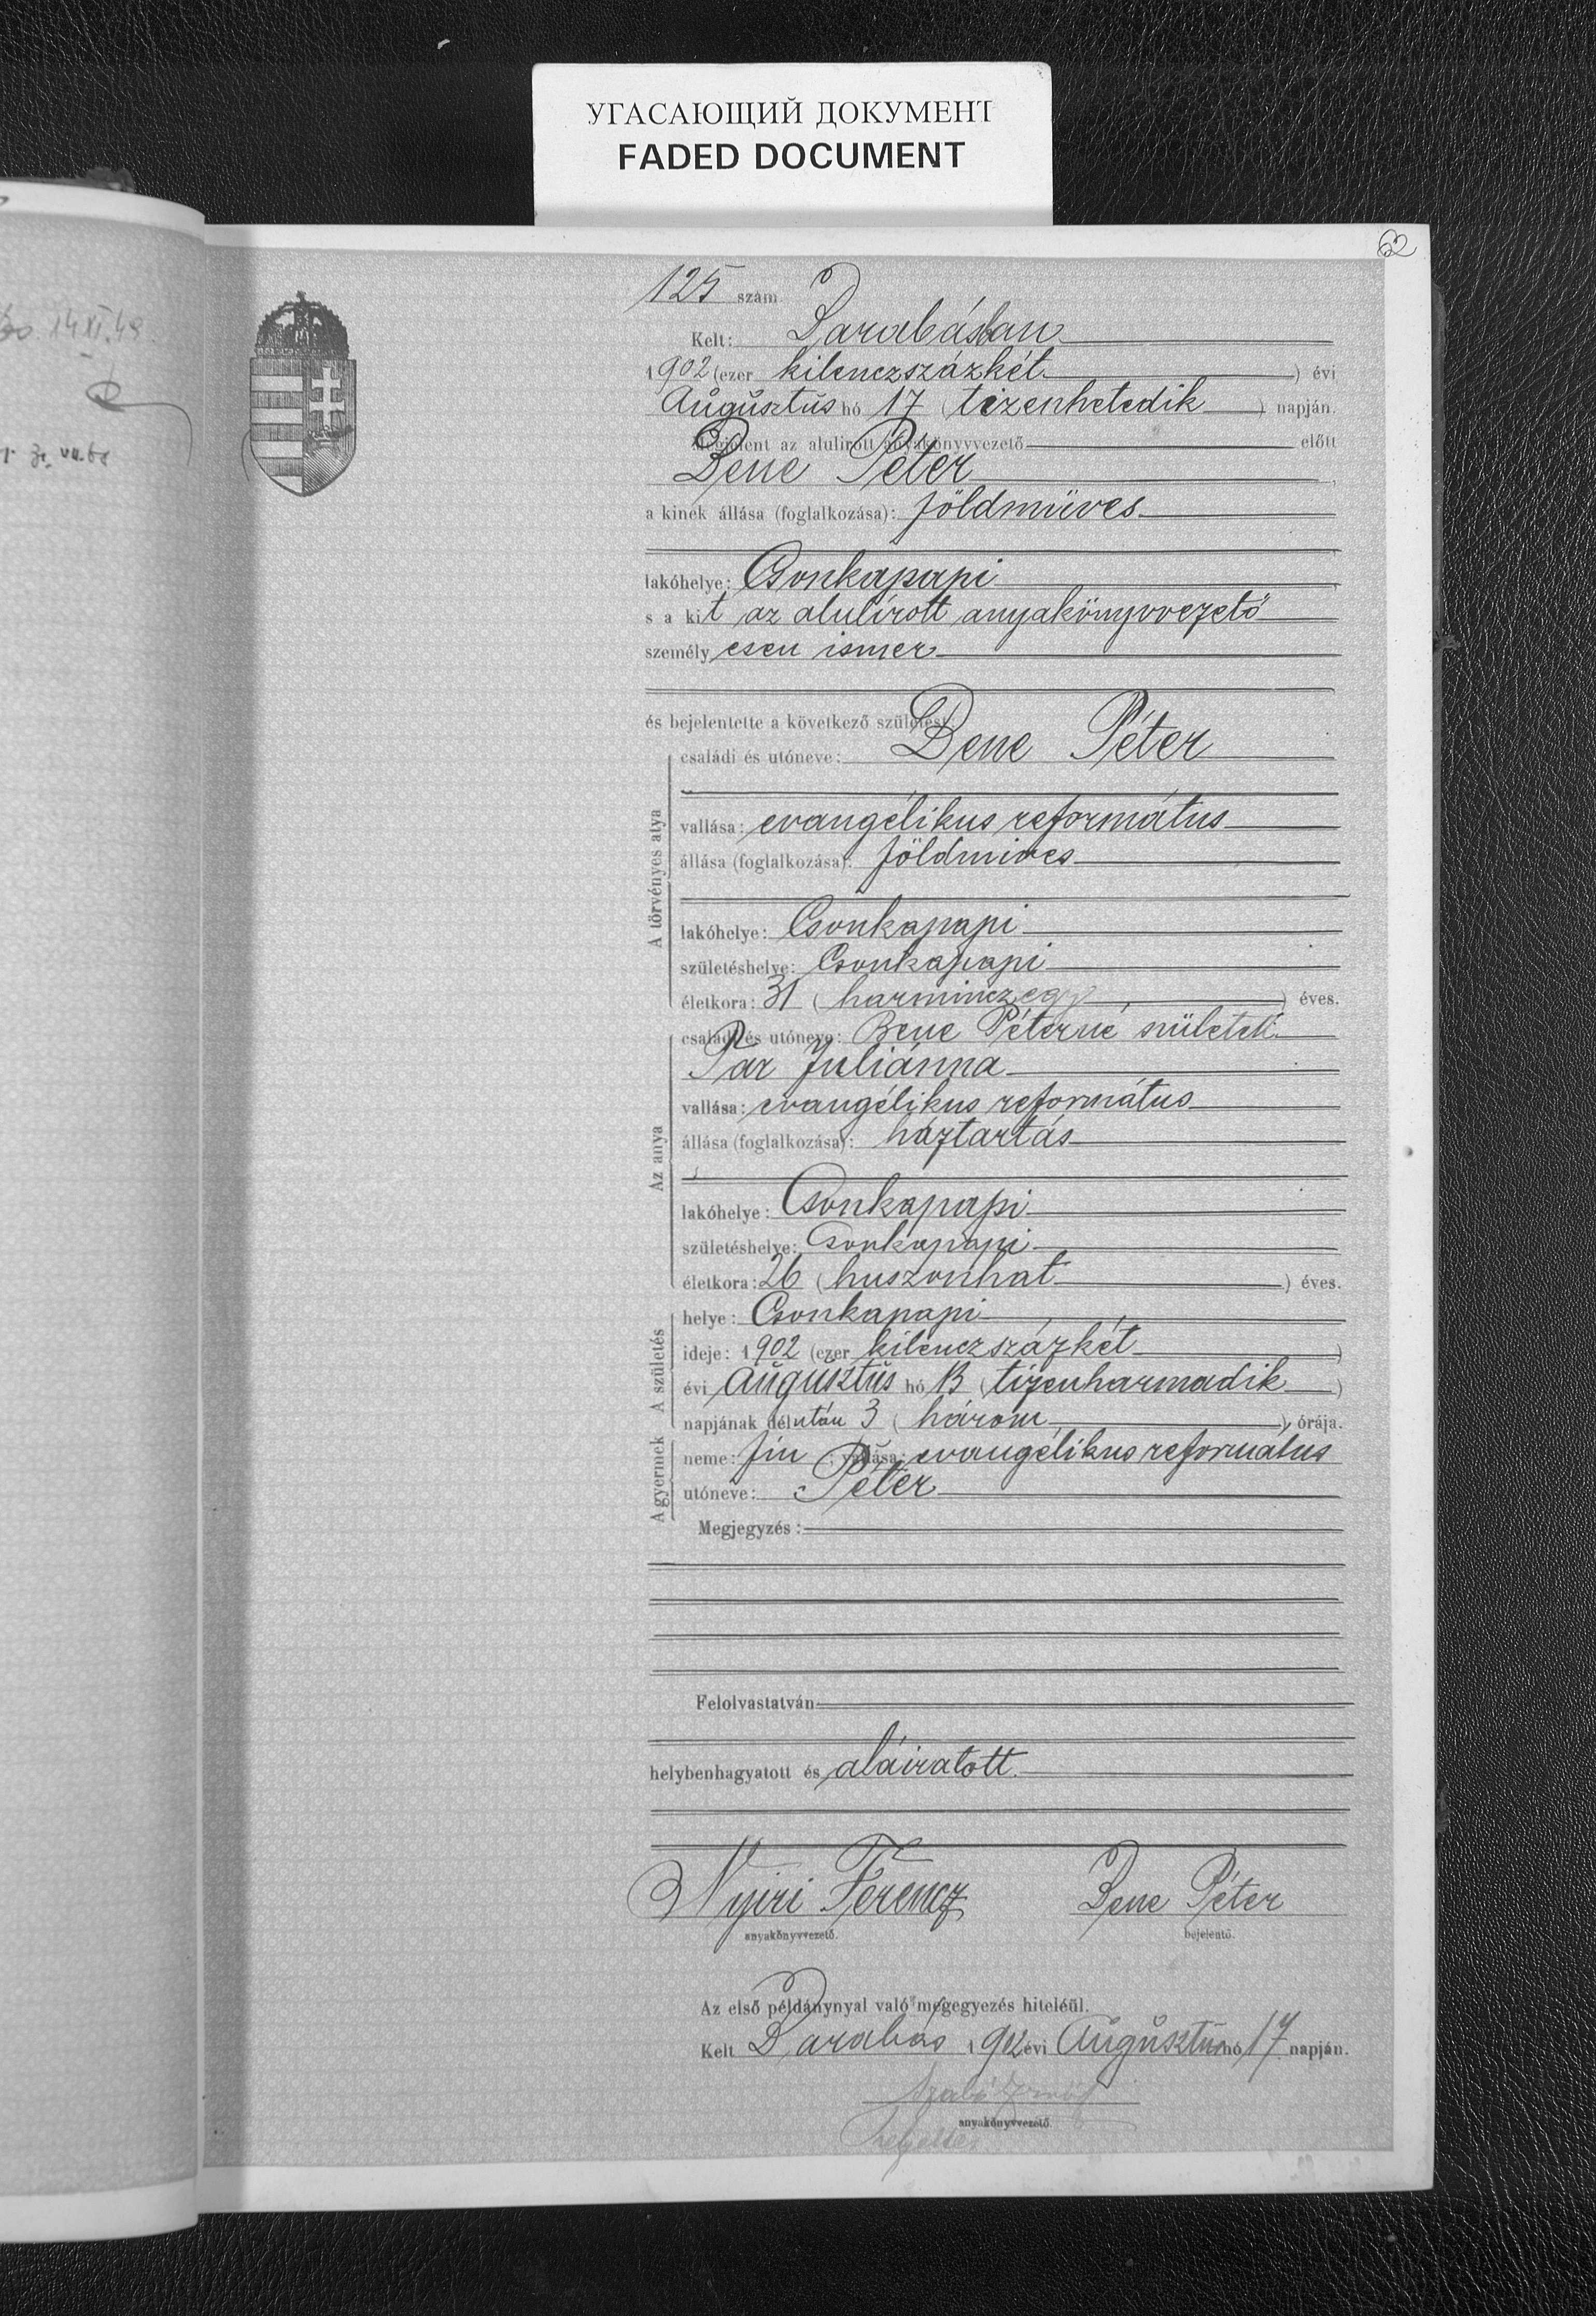 УГАСАЮЩИЙ ДОКУМЕНТ
FADED DOCUMENT
62
14 XI. 49
125 szám
Kelt: Barabásban
1902 (ezer kilenczszázkét) évi
Augusztus hó 17 (tizenhetedik) napján.
Megjelent az alulirott anyakönyvvezető előtt
Bene Péter
a kinek állása (foglalkozása): földmüves
lakóhelye: Csonkapapi
s a kit az alulírott anyakönyvvezető
személyesen ismer
és bejelentette a következő születést
A törvényes atya
családi és utóneve: Bene Péter
vallása: evangélikus református
állása (foglalkozása): földmives
lakóhelye: Csonkapapi
születéshelye: Csonkapapi
életkora: 31 (harminczegy) éves.
Az anya
családi és utóneve: Bene Péterné született
Par Juliánna
vallása: evangélikus református
állása (foglalkozása): háztartás
lakóhelye: Csonkapapi
születéshelye: Csonkapapi
életkora: 26 (huszonhat) éves.
A születés
helye: Csonkapapi
ideje: 1902 (ezer kilenczszázkét)
évi Augusztus hó 13 (tizenharmadik)
napjának délután 3 (három) órája.
A gyermek
neme: fiu; vallása: evangélikus református
utóneve: Péter
Megjegyzés:
Felolvastatván
helybenhagyatott és aláiratott.
Nyiri Ferencz Bene Péter
anyakönyvvezető. bejelentő.
Az első példánynyal való megegyezés hiteléül.
Kelt Barabás 1902 évi Augusztus hó 17 napján.
Szabó
anyakönyvvezető
helyettes